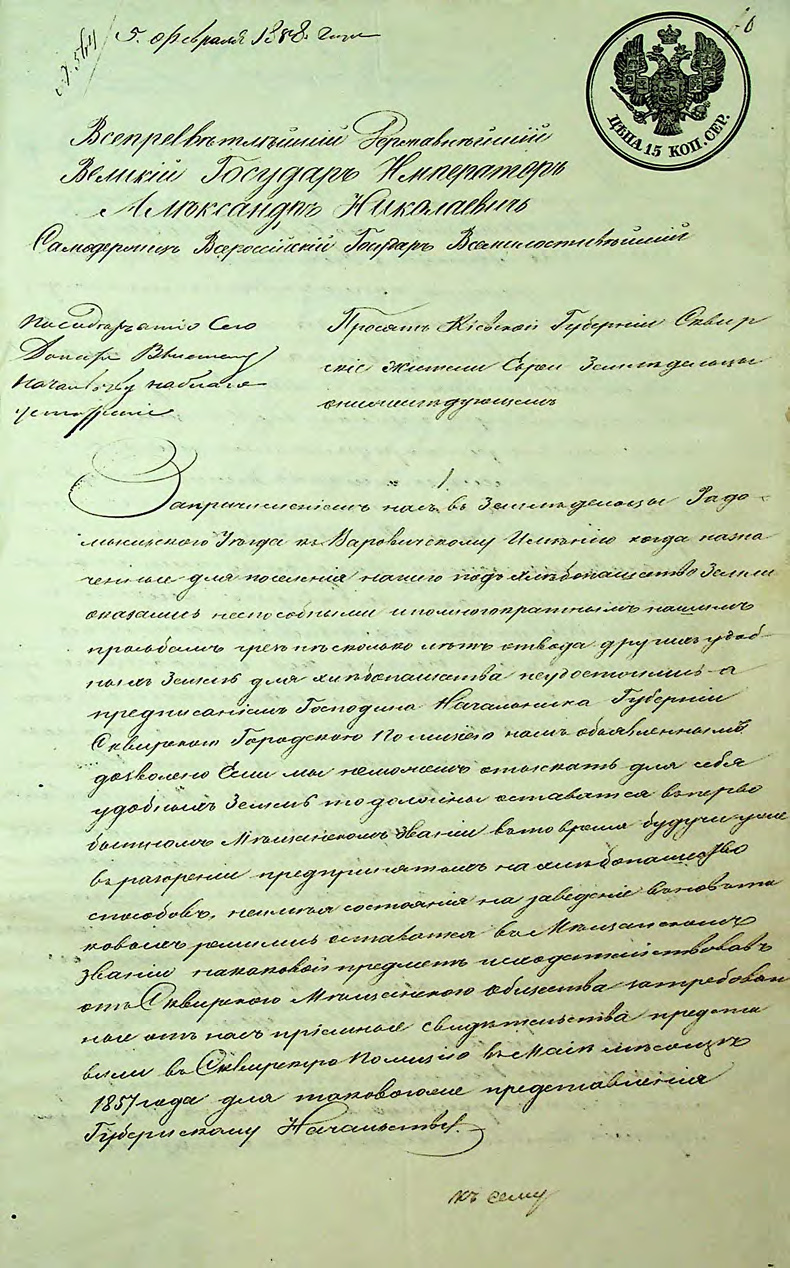 5. февраля 1858 года
ЦѢНА 15 КОП. СЕР.
Всепресвѣтлѣйшій Державнѣйшій
Великій Государь Императоръ
Алѣксандръ Николаевичъ
Самодержецъ Всероссійскій Государь Всемилостивѣйшій
Просятъ Кіевской Губерніи Сквир
скіе жители Евреи Земледельцы
онижеслѣдующемъ
1
Запричисленіемъ насъ въ Земледельцы Радо-
мысльского Уѣзда къ Варовичскому Имѣнію когда назна
ченные для поселенія нашего подъ хлѣбопашество Земли
оказались неспособными ипомногократнымъ нашимъ
прозьбамъ чрезъ нѣсколько лѣтъ отвода другихъ удоб-
ныхъ Земель для хлѣбопашества неудостоились а
предписаніемъ Господина Начальника Губерніи
Сквирскою Городскою Полиціею намъ объявленнымъ
дозволено Если мы неможемъ отыскать для себя
удобныхъ Земель то должны оставатся въ перво
бытномъ Мѣщанскомъ Званіи вътовремя будучи уже
въ разореніи предпринятомъ на хлѣбопашество
способовъ, неимѣя состоянія на заведеніе вьновь та
ковыхъ решились оставатся въ Мѣщанскомъ
Званіи накаковой предметъ исходатайствовавъ
отъ Сквирского Мѣщанского общества затребован
ные отъ насъ пріемные свидѣтельства предста
вили въ Сквирскую Полицію въ Маѣ мѣсяцѣ
1857 года для таковогоже представленія
Губернскому Начальству.
къ сему